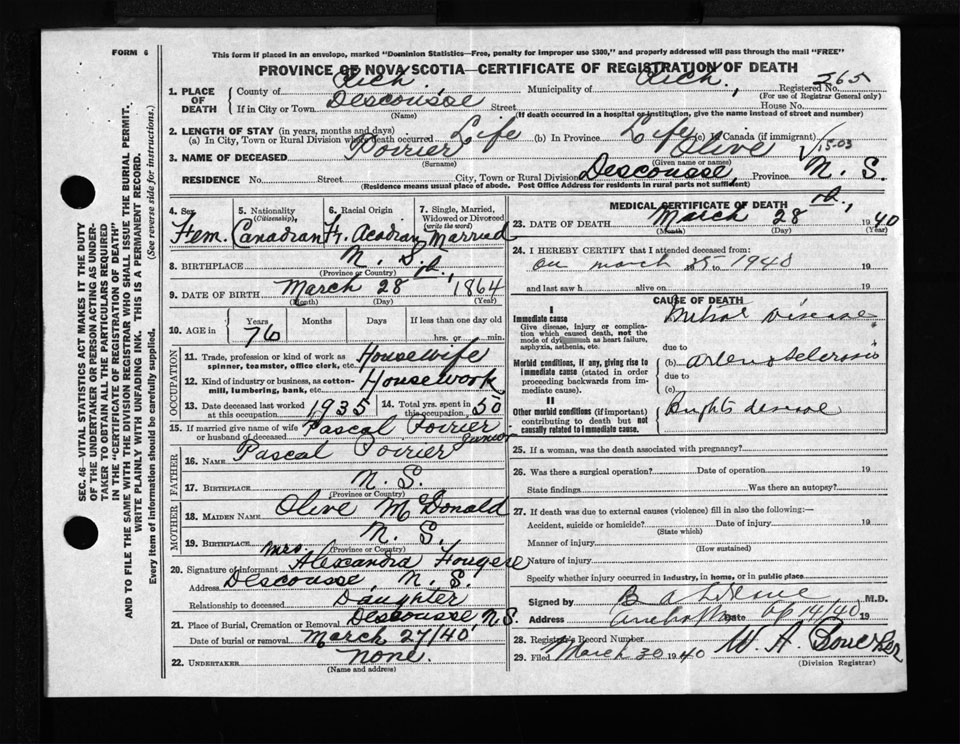 FORM 6
This form if placed in an envelope, marked "Dominion Statistics—Free, penalty for improper use $300," and properly addressed will pass through the mail "FREE"
PROVINCE OF NOVA SCOTIA—CERTIFICATE OF REGISTRATION OF DEATH
SEC. 46—VITAL STATISTICS ACT MAKES IT THE DUTY
OF THE UNDERTAKER OR PERSON ACTING AS UNDER-
TAKER TO OBTAIN ALL THE PARTICULARS REQUIRED
IN THE "CERTIFICATE OF REGISTRATION OF DEATH"
AND TO FILE THE SAME WITH THE DIVISION REGISTRAR WHO SHALL ISSUE THE BURIAL PERMIT.
WRITE PLAINLY WITH UNFADING INK. THIS IS A PERMANENT RECORD.
Every item of information should be carefully supplied. (See reverse side for instructions.)
1. PLACE OF DEATH
County of Rich. Municipality of Rich., Registered No. 265
(For use of Registrar General only)
If in City or Town Descousse Street House No.
(Name) (If death occurred in a hospital or institution, give the name instead of street and number)
2. LENGTH OF STAY (in years, months and days)
(a) In City, Town or Rural Division where death occurred Life (b) In Province Life (c) In Canada (if immigrant)
3. NAME OF DECEASED Poirier Olive 1503
(Surname) (Given name or names)
RESIDENCE No. Street City, Town or Rural Division Descousse, Province N. S.
(Residence means usual place of abode. Post Office Address for residents in rural parts not sufficient)
4. Sex Fem.
5. Nationality (Citizenship) Canadian
6. Racial Origin Fr. Acadian
7. Single, Married, Widowed or Divorced (write the word) Married
8. BIRTHPLACE N. S.
(Province or Country)
9. DATE OF BIRTH March 28 rd., 1864
(Month) (Day) (Year)
10. AGE in Years 76 Months Days If less than one day old
hrs. or min.
OCCUPATION
11. Trade, profession or kind of work as spinner, teamster, office clerk, etc. Housewife
12. Kind of industry or business, as cotton-mill, lumbering, bank, etc. Housework
13. Date deceased last worked at this occupation 1935
14. Total yrs. spent in this occupation 50
15. If married give name of wife or husband of deceased Pascal Poirier
Junior
FATHER
16. Name Pascal Poirier
17. Birthplace N. S.
(Province or Country)
MOTHER
18. Maiden Name Olive McDonald
19. Birthplace N. S.
(Province or Country)
20. Signature of informant Mrs. Alexandra Fougere
Address Descousse, N. S.
Relationship to deceased Daughter
21. Place of Burial, Cremation or Removal Descousse, N.S.
Date of burial or removal March 27/40
22. UNDERTAKER none.
(Name and address)
MEDICAL CERTIFICATE OF DEATH
23. DATE OF DEATH March 28 rd., 1940
(Month) (Day) (Year)
24. I HEREBY CERTIFY that I attended deceased from:
on march 25 to 1940 19
and last saw h alive on 19
CAUSE OF DEATH
I
Immediate cause Mitral Disease
Give disease, injury or complication which caused death, not the mode of dying such as heart failure, asphyxia, asthenia, etc.
due to
Morbid conditions, if any, giving rise to immediate cause (stated in order proceeding backwards from immediate cause).
(b) arterio sclerosis
due to
(c)
II
Other morbid conditions (if important) contributing to death but not causally related to immediate cause.
Brights disease
25. If a woman, was the death associated with pregnancy?
26. Was there a surgical operation? Date of operation 19
State findings Was there an autopsy?
27. If death was due to external causes (violence) fill in also the following:—
Accident, suicide or homicide? Date of injury 19
(State which)
Manner of injury
(How sustained)
Nature of injury
Specify whether injury occurred in industry, in home, or in public place
Signed by B A M.D.
Address Arichat Date Ap 14/40 19
28. Registrar's Record Number
29. Filed March 30 1940 W. A. Boucher
(Division Registrar)